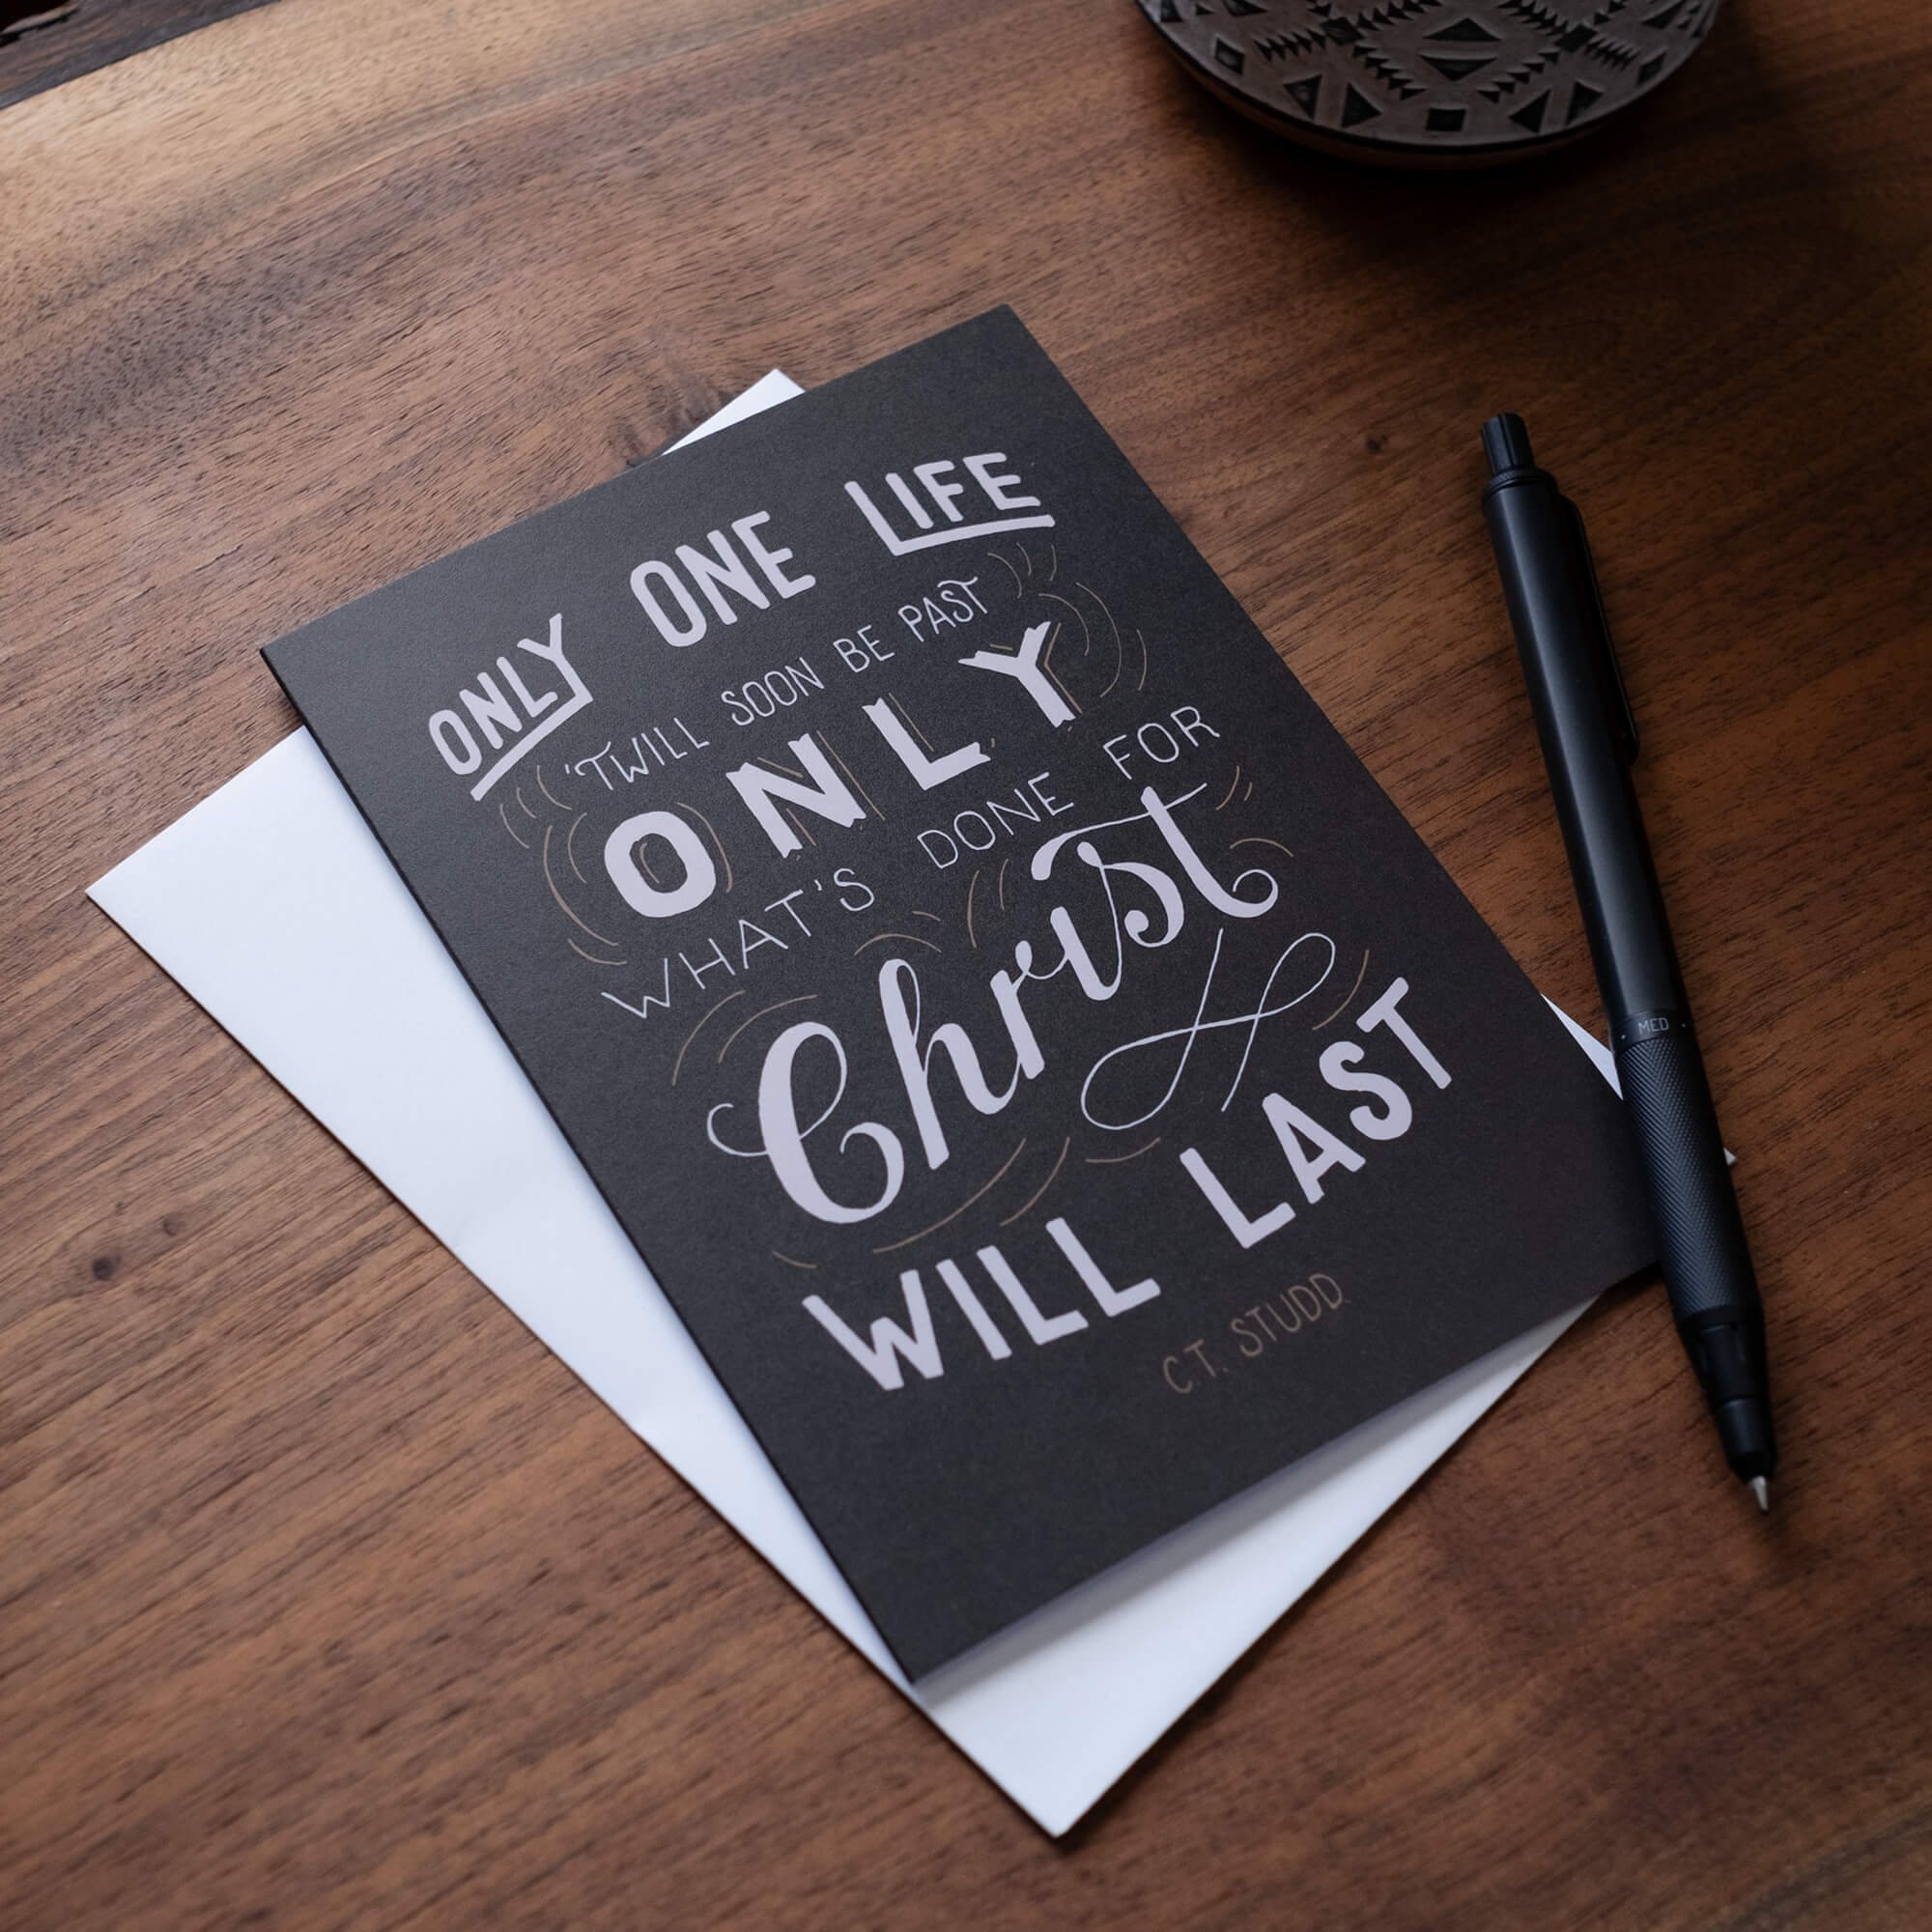 ONLY ONE LIFE
'TWILL SOON BE PAST
ONLY
WHAT'S DONE FOR
Christ
WILL LAST
C.T. STUDD
MED